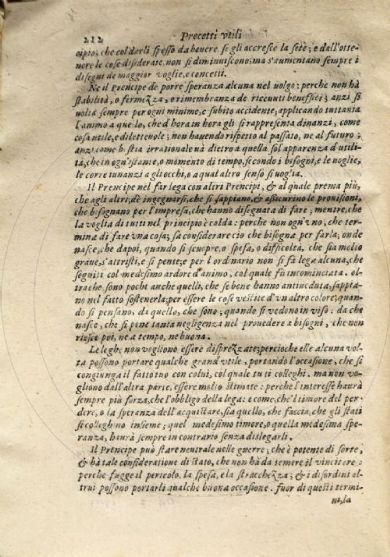 212 Precetti vtili
cipio, che col darli spesso da beuere se gli accresce la sete; e dall'otte-
nere le cose disiderate, non si diminuiscono, ma s'aumentano sempre i
disegni de maggior voglie, e concetti.
Ne il prencipe dè porre speranza alcuna nel volgo; perche non hà
stabilità, o fermezza, o rimembranza de riceuuti beneficij; anzi si
volta sempre per ogni minimo, e subito accidente, applicando tuttauia
l'animo a quello, che d'hora in hora gli si rappresenta dinanzi, come
cosa vtile, e diletteuole; non hauendo rispetto al passato, ne al futuro;
anzi come bestia irrationale và dietro a quella sol apparenza d'vtili-
tà, che in ogn'istante, o momento di tempo, secondo i bisogni, e le voglie,
le corre inanzi a gli occhi, o a qual altro senso si voglia.
Il Prencipe nel far lega con altri Prencipi, & al quale prema più,
che agli altri, dè ingegnarsi, che si sappiano, & assicurino le prouisioni,
che bisognano per l'impresa, che hanno disegnata di fare, mentre, che
la voglia di tutti nel principio è calda: perche non ogn'vno, che ter-
mina di fare vna cosa, sà considerare ciò che bisogna per farla; onde
nasce, che dapoi, quando si scuopre, o spesa, o difficoltà, che sia molto
graue, s'attrista, e si pente; per l'ordinario non si fà lega alcuna, che
seguiti col medesimo ardore d'animo, col quale fù incominciata. ol-
trache sono pochi anche quelli, che se bene hanno antiueduta, sappia-
no nel fatto sostenerla; per essere le cose vestite d'vn altro colore, quan-
do si pensano, da quello, che sono, quando si vedono in viso. da che
nasce, che si pone tanta negligenza nel prouedere a bisogni, che non
riesce poi, ne a tempo, ne buona.
Le leghe non vogliono essere disprezzate; percioche elle alcuna vol-
ta possono portare qualche grand'vtile, portando l'occasione, che si
congiunga il fattotto con colui, col quale tu ti colleghi, ma non vo-
gliono dall'altra parte, essere molto stimate: perche l'interesse haurà
sempre più forza, che l'obbligo della lega: e come, che'l timore del per-
dere, o la speranza dell'acquistare, sia quello, che faccia, che gli stati
si colleghino insieme; quel medesimo timore, o quella medesima spe-
ranza, haurà sempre in contrario senza dislegarli.
Il Principe può stare neutrale nelle guerre; che è potente di sorte,
& hà tale consideratione di stato, che non hà da temere il vincitore:
perche fugge il pericolo, la spesa, e la stracchezza; & i disordini al-
trui possono portarli qualche buona occasione. fuor di questi termi-
ni, la